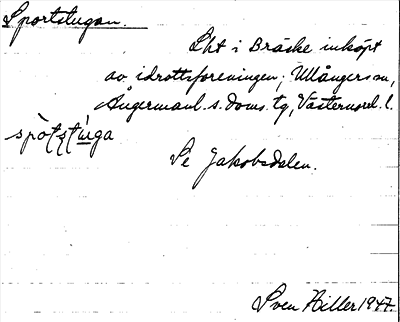 Sportstugan.
Lht i Bräcke inköpt
av idrottsföreningen; Ullångers sn,
Ångermanl. s. doms. tg, Västernorrl. l.
spòtstúga
Se Jakobsdalen.
Sven Hiller 1947.